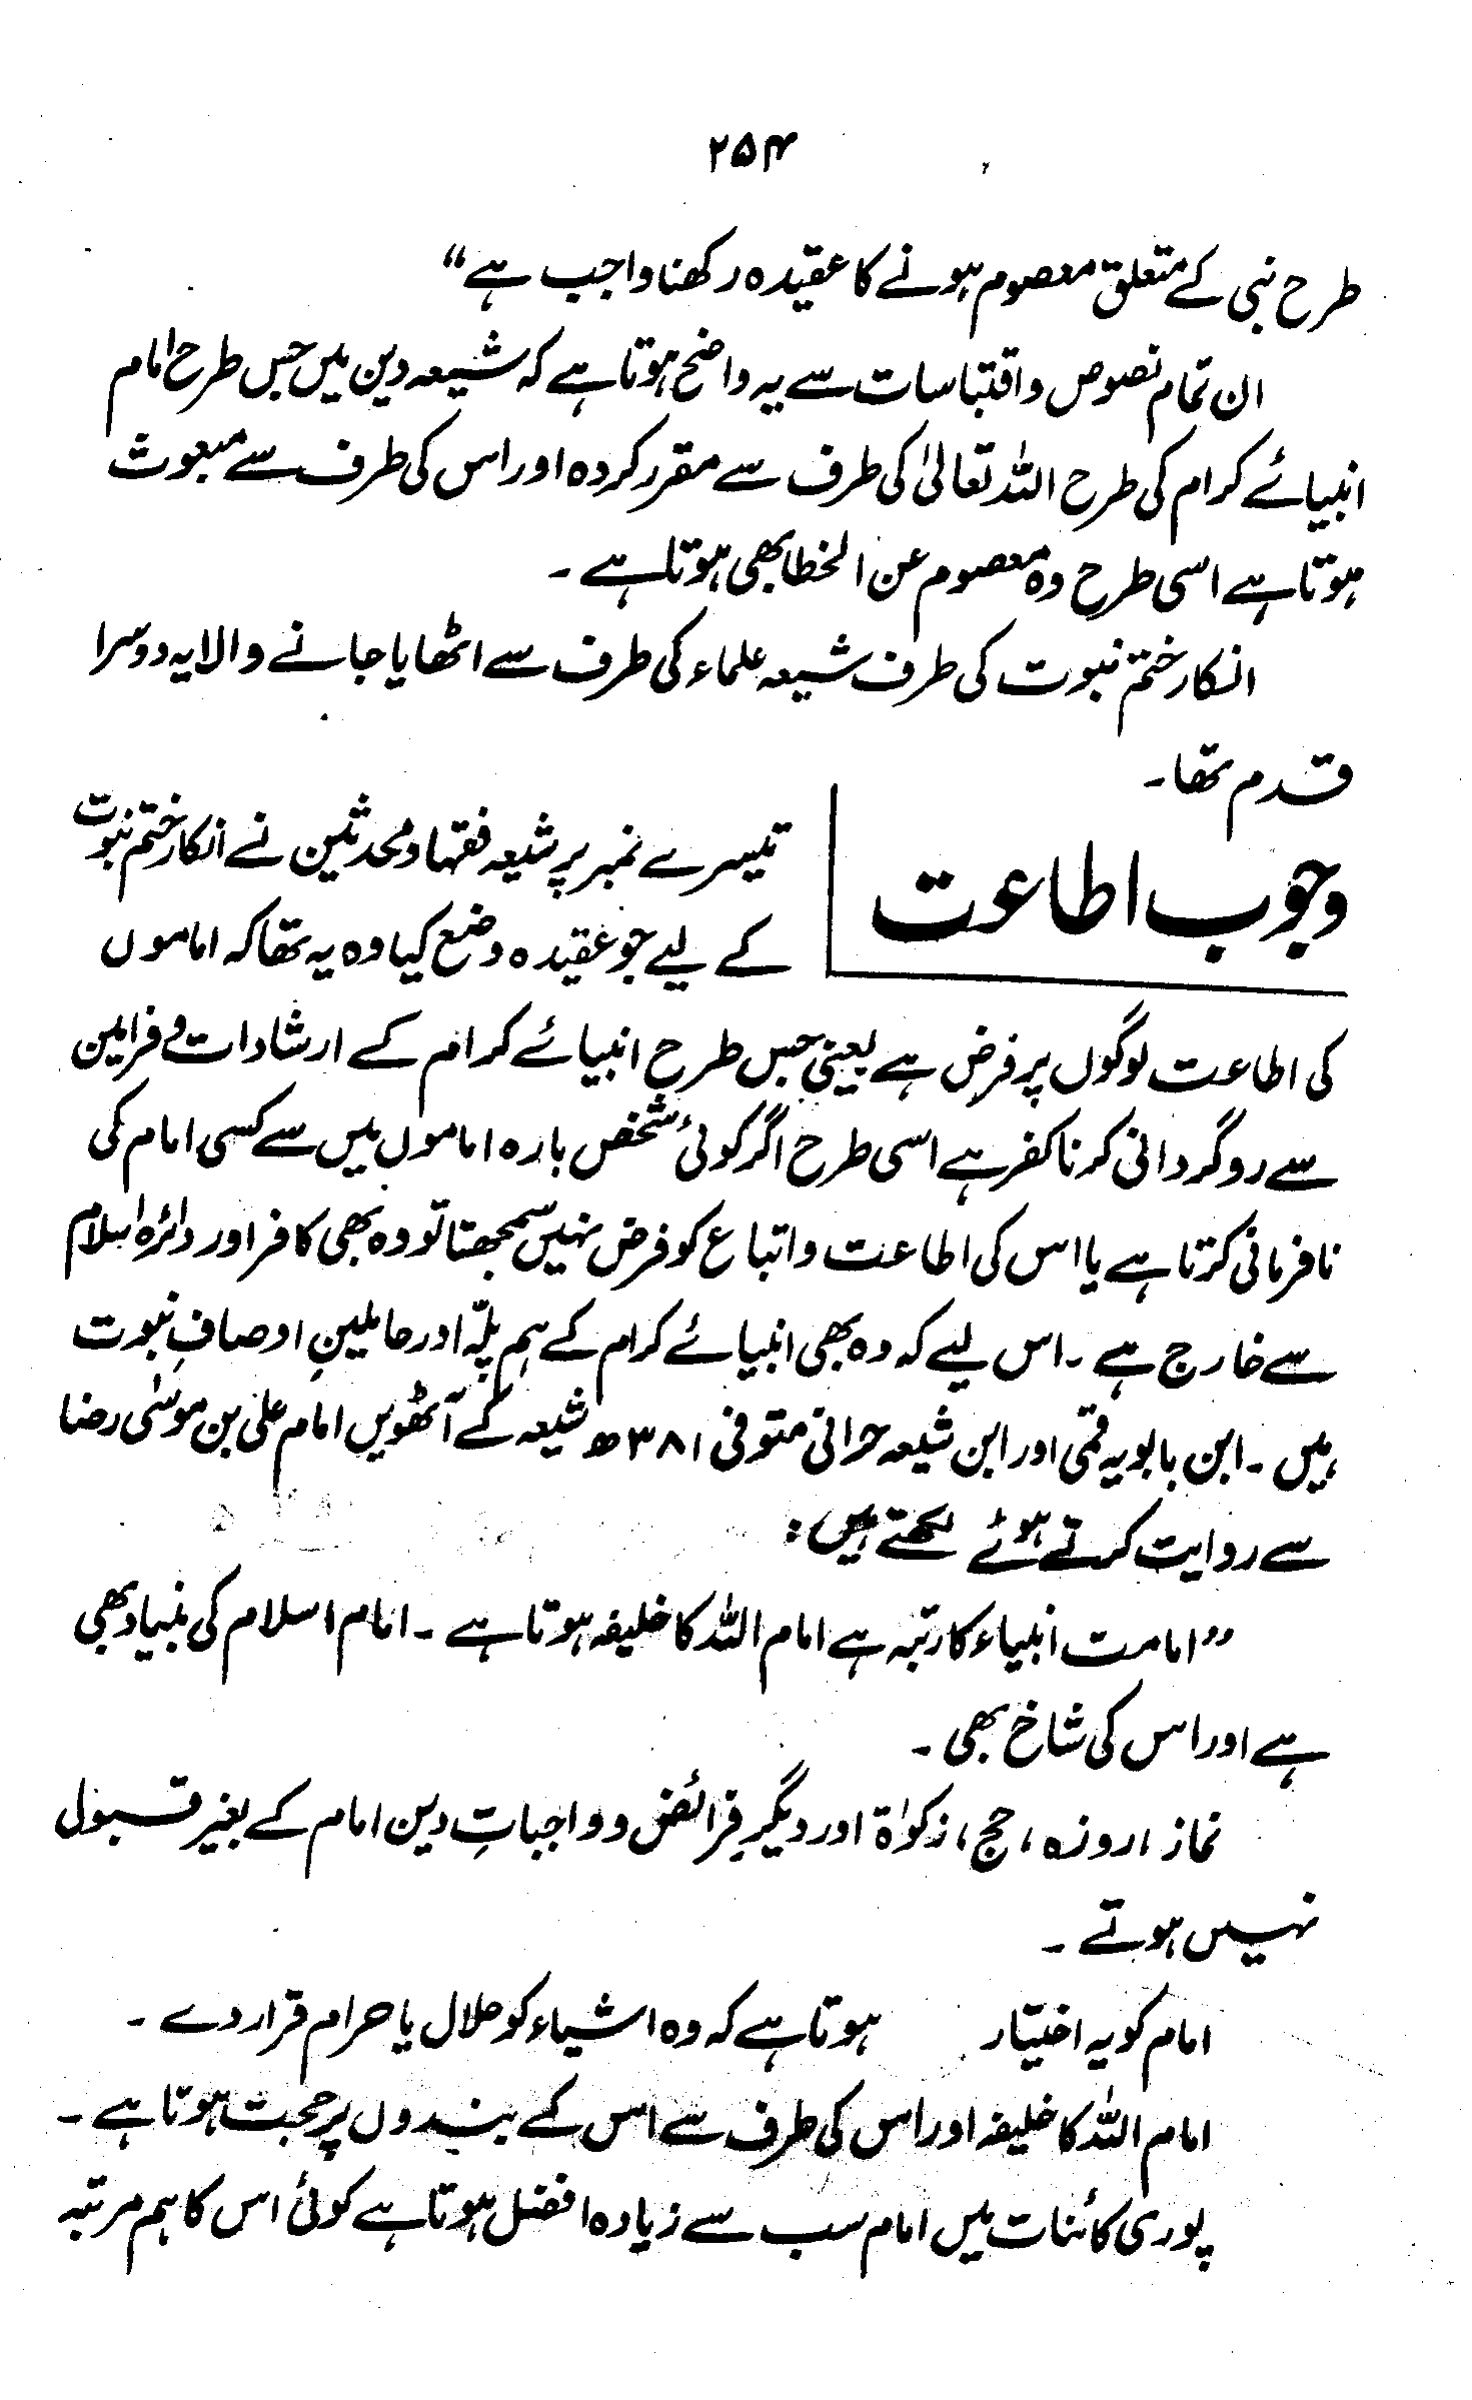 ۲۵۴
طرح نبی کے متعلق معصوم ہونے کا عقیدہ رکھنا واجب ہے“
ان تمام نصوص واقتباسات سے یہ واضح ہوتا ہے کہ شیعہ دین میں جس طرح امام
انبیائے کرام کی طرح اللہ تعالیٰ کی طرف سے مقرر کردہ اور اس کی طرف سے مبعوث
ہوتا ہے اسی طرح وہ معصوم عن الخطا بھی ہوتا ہے ۔
انکار ختم نبوت کی طرف شیعہ علماء کی طرف سے اٹھایا جانے والا یہ دوسرا
قدم تھا ۔
وجوب اطاعت
تیسرے نمبر پر شیعہ فقہا و محدثین نے انکار ختم نبوت
کے لیے جو عقیدہ وضع کیا وہ یہ تھا کہ اماموں
کی اطاعت لوگوں پر فرض ہے یعنی جس طرح انبیائے کرام کے ارشادات و فرامین
سے روگردانی کرنا کفر ہے اسی طرح اگر کوئی شخص بارہ اماموں میں سے کسی امام کی
نافرمانی کرتا ہے یا اس کی اطاعت واتباع کو فرض نہیں سمجھتا تو وہ بھی کافر اور دائرہ اسلام
سے خارج ہے ۔ اس لیے کہ وہ بھی انبیائے کرام کے ہم پلّہ اور حاملینِ اوصافِ نبوت
ہیں ۔ ابن بابویہ قمی اور ابن شیعہ حرانی متوفی ۳۸۱ھ شیعہ کے آٹھویں امام علی بن موسٰی رضا
سے روایت کرتے ہوئے لکھتے ہیں :
”امامت انبیاء کا رتبہ ہے امام اللہ کا خلیفہ ہوتا ہے ۔ امام اسلام کی بنیاد بھی
ہے اور اس کی شاخ بھی ۔
نماز ، روزہ ، حج ، زکوٰۃ اور دیگر فرائض و واجباتِ دین امام کے بغیر قبول
نہیں ہوتے ۔
امام کو یہ اختیار ہوتا ہے کہ وہ اشیاء کو حلال یا حرام قرار دے ۔
امام اللہ کا خلیفہ اور اس کی طرف سے اس کے بندوں پر حجت ہوتا ہے ۔
پوری کائنات میں امام سب سے زیادہ افضل ہوتا ہے کوئی اس کا ہم مرتبہ